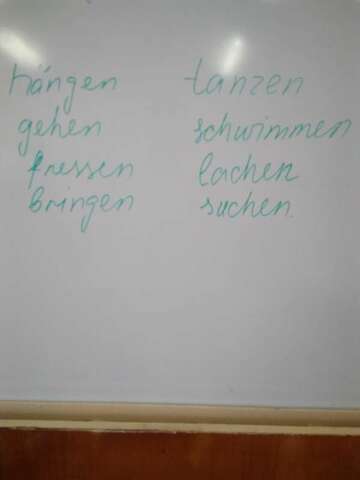 hängen tanzen
gehen schwimmen
fressen lachen
bringen suchen.